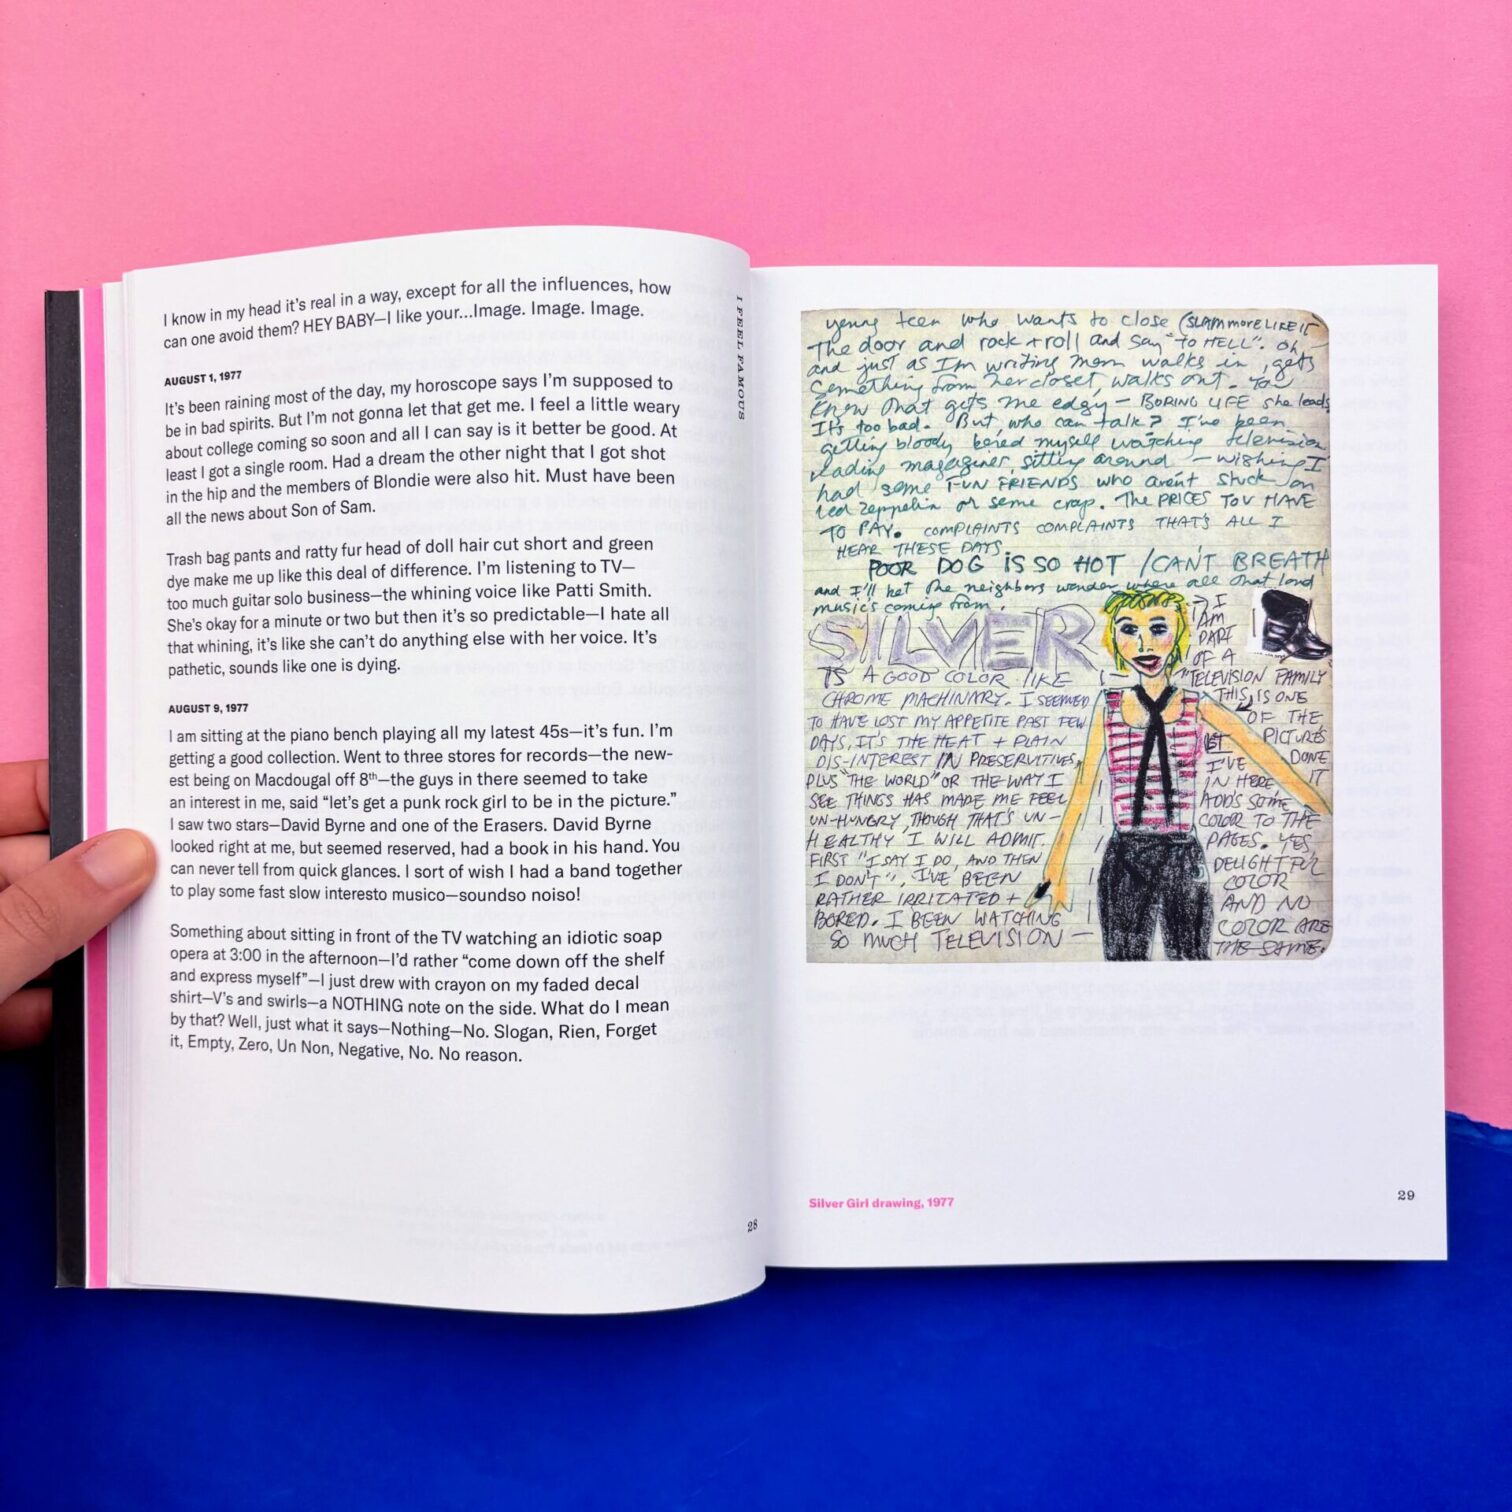 I know in my head it's real in a way, except for all the influences, how
can one avoid them? HEY BABY—I like your...Image. Image. Image.
AUGUST 1, 1977
It's been raining most of the day, my horoscope says I'm supposed to
be in bad spirits. But I'm not gonna let that get me. I feel a little weary
about college coming so soon and all I can say is it better be good. At
least I got a single room. Had a dream the other night that I got shot
in the hip and the members of Blondie were also hit. Must have been
all the news about Son of Sam.
Trash bag pants and ratty fur head of doll hair cut short and green
dye make me up like this deal of difference. I'm listening to TV—
too much guitar solo business—the whining voice like Patti Smith.
She's okay for a minute or two but then it's so predictable—I hate all
that whining, it's like she can't do anything else with her voice. It's
pathetic, sounds like one is dying.
AUGUST 9, 1977
I am sitting at the piano bench playing all my latest 45s—it's fun. I'm
getting a good collection. Went to three stores for records—the new-
est being on Macdougal off 8th—the guys in there seemed to take
an interest in me, said "let's get a punk rock girl to be in the picture."
I saw two stars—David Byrne and one of the Erasers. David Byrne
looked right at me, but seemed reserved, had a book in his hand. You
can never tell from quick glances. I sort of wish I had a band together
to play some fast slow interesto musico—soundso noiso!
Something about sitting in front of the TV watching an idiotic soap
opera at 3:00 in the afternoon—I'd rather "come down off the shelf
and express myself"—I just drew with crayon on my faded decal
shirt—V's and swirls—a NOTHING note on the side. What do I mean
by that? Well, just what it says—Nothing—No. Slogan, Rien, Forget
it, Empty, Zero, Un Non, Negative, No. No reason.
I FEEL FAMOUS
28
young teen who wants to close (SLAM MORE LIKE IT
The door and rock + roll and say "TO HELL". Oh
and just as I'm writing mom walks in, gets
something from her closet, walks out. You
know that gets me edgy — BORING LIFE she leads
It's too bad. But, who can talk? I've been
getting bloody bored myself watching television
reading magazines, sitting around — wishing I
had some FUN FRIENDS who aren't stuck on
Led Zeppelin or some crap. The PRICES YOU HAVE
TO PAY. COMPLAINTS COMPLAINTS THAT'S ALL I
HEAR THESE DAYS.
POOR DOG IS SO HOT / CAN'T BREATH
and I'll bet the neighbors wonder where all that loud
music's coming from.
SILVER
IS A GOOD COLOR LIKE
CHROME MACHINARY. I SEEMED
TO HAVE LOST MY APPETITE PAST FEW
DAYS, IT'S THE HEAT + PLAIN
DIS-INTEREST IN PRESERVITIVES,
PLUS "THE WORLD" OR THE WAY I
SEE THINGS HAS MADE ME FEEL
UN-HUNGRY, THOUGH THAT'S UN-
HEALTHY I WILL ADMIT.
FIRST "I SAY I DO, AND THEN
I DON'T", I'VE BEEN
RATHER IRRITATED +
BORED. I BEEN WATCHING
SO MUCH TELEVISION —
I
AM
PART
OF A
"TELEVISION FAMILY
THIS IS ONE
OF THE
PICTURES
I'VE DONE
IN HERE IT
ADD'S SOME
COLOR TO THE
PAGES. YES,
DELIGHTFUL
COLOR
AND NO
COLOR ARE
THE SAME.
Silver Girl drawing, 1977
29